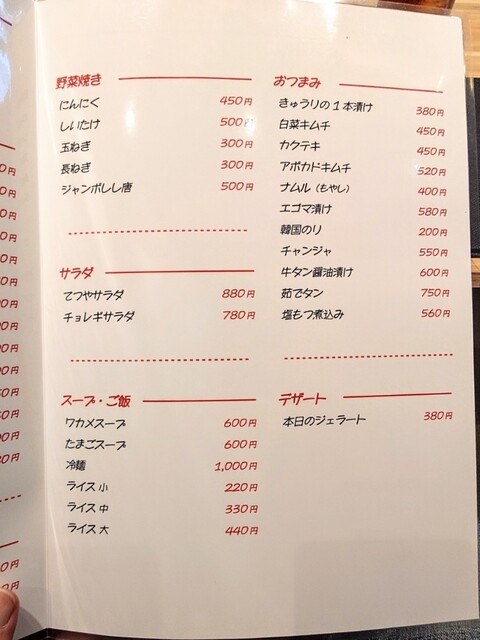 野菜焼き
にんにく 450円
しいたけ 500円
玉ねぎ 300円
長ねぎ 300円
ジャンボしし唐 500円
サラダ
てつやサラダ 880円
チョレギサラダ 780円
スープ・ご飯
ワカメスープ 600円
たまごスープ 600円
冷麺 1,000円
ライス 小 220円
ライス 中 330円
ライス 大 440円
おつまみ
きゅうりの1本漬け 380円
白菜キムチ 450円
カクテキ 450円
アボカドキムチ 520円
ナムル(もやし) 400円
エゴマ漬け 580円
韓国のり 200円
チャンジャ 550円
牛タン醤油漬け 600円
茹でタン 750円
塩もつ煮込み 560円
デザート
本日のジェラート 380円